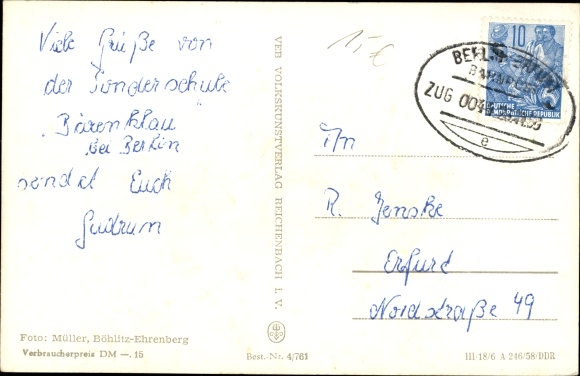 Viele Grüße von
der Sonderschule
Bärenklau
bei Berlin
sendet Euch
Gudrun
1,- €
VEB VOLKSKUNSTVERLAG REICHENBACH I. V.
10
DEUTSCHE
DEMOKRATISCHE REPUBLIK
BAHNPOST
ZUG
e
R. Jenske
Erfurt
Nordstraße 49
Foto: Müller, Böhlitz-Ehrenberg
Verbraucherpreis DM —.15
Best.-Nr. 4/761
III/18/6 A 246/58/DDR